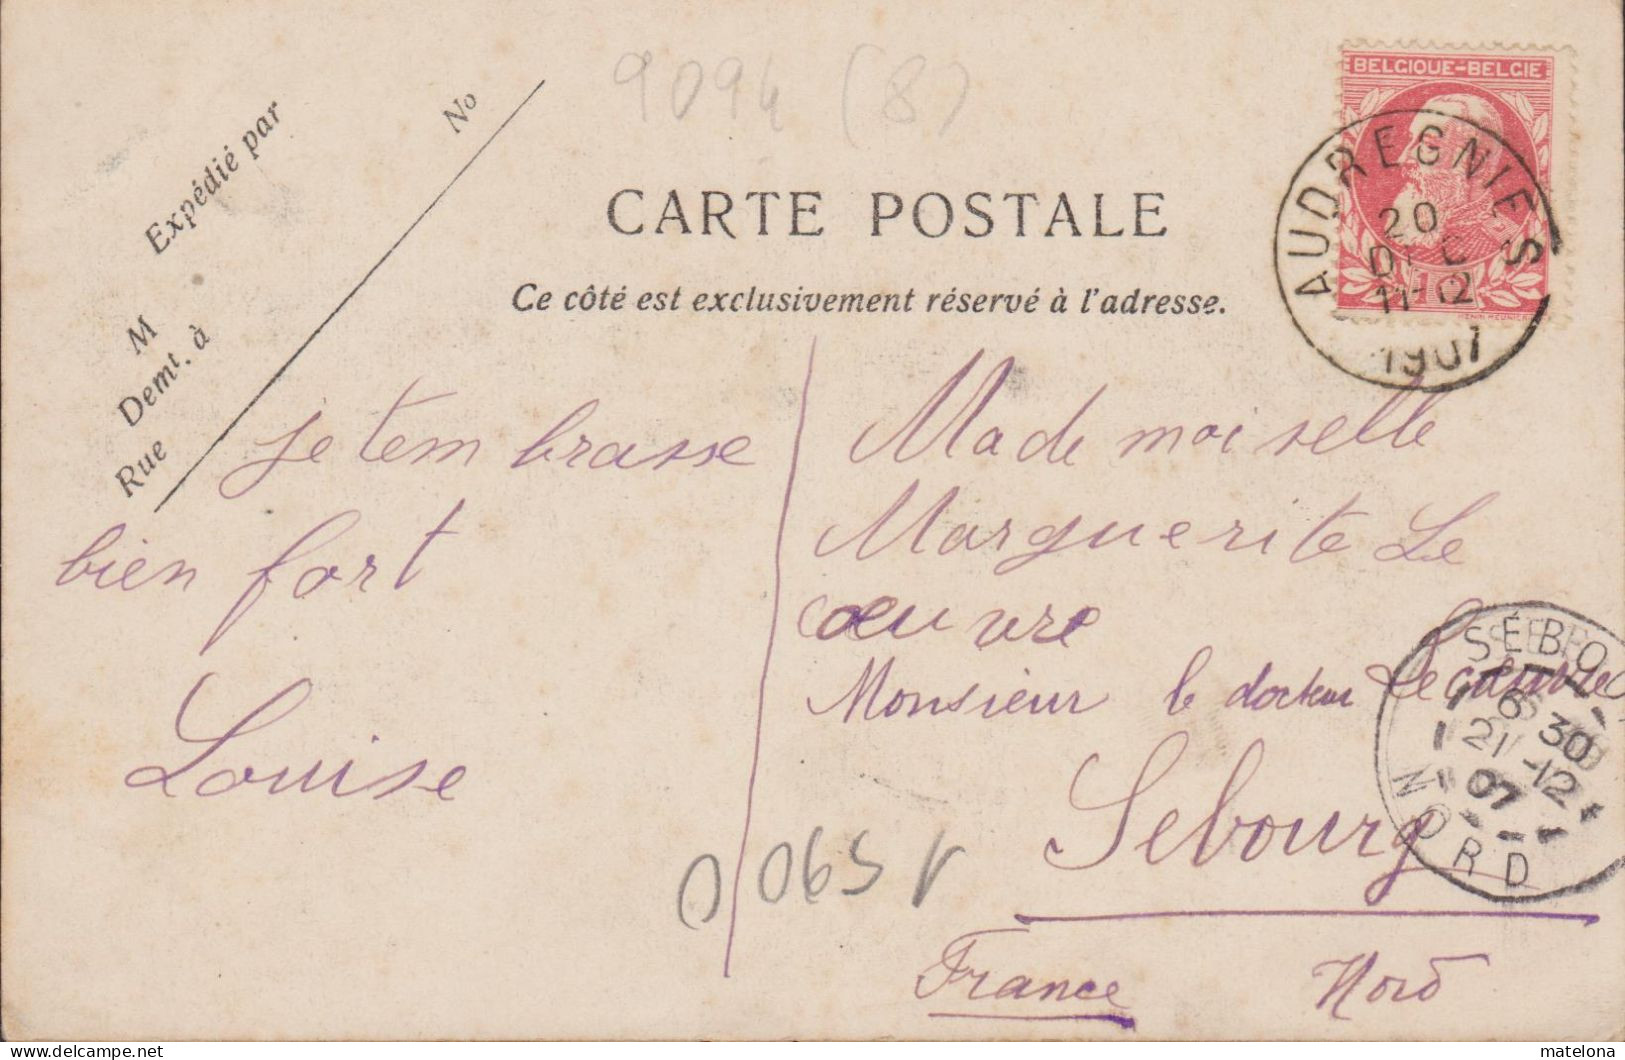 9094 (8)
BELGIQUE-BELGIE
AUDREGNIES
20
DEC
11-12
1907
Expédié par
No
M
Demt. à
Rue
CARTE POSTALE
Ce côté est exclusivement réservé à l'adresse.
je tem brasse
bien fort
Louise
Made moiselle
Marguerite Le
œuvre
Monsieur le docteur
Sebourg
France Nord
SÉBO
6 30
21 -12
07
NORD
0 065 V
matelona